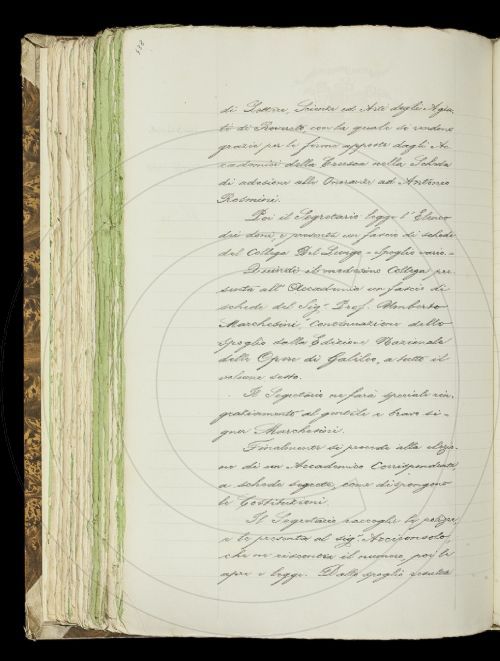 538
di Lettere, Scienze ed Arte degli Agia-
ti di Rovereto, con la quale si rendono
grazie per le firme apposte dagli Ac-
cademici della Crusca nella Scheda
di adesione alle Onoranze ad Antonio
Rosmini.
Poi il Segretario legge l'Elenco
dei doni, e presenta un fascio di schede
del Collega Del Lungo - Spoglio vario. -
Quindi il medesimo Collega pre-
senta all'Accademia un fascio di
schede del Sig.r Prof. Umberto
Marchesini, continuazione dello
spoglio dalla Edizione Nazionale
delle Opere di Galileo, a tutto il
volume sesto.
Il Segretario ne farà speciale rin-
graziamento al gentile e bravo si-
gnor Marchesini.
Finalmente si procede alla elezio-
ne di un Accademico Corrispondente
a schede segrete, come dispongono
le Costituzioni.
Il Segretario raccoglie le polizze,
e le presenta al sig.r Arciconsolo,
che ne riscontra il numero, poi le
apre e legge. Dallo spoglio resulta